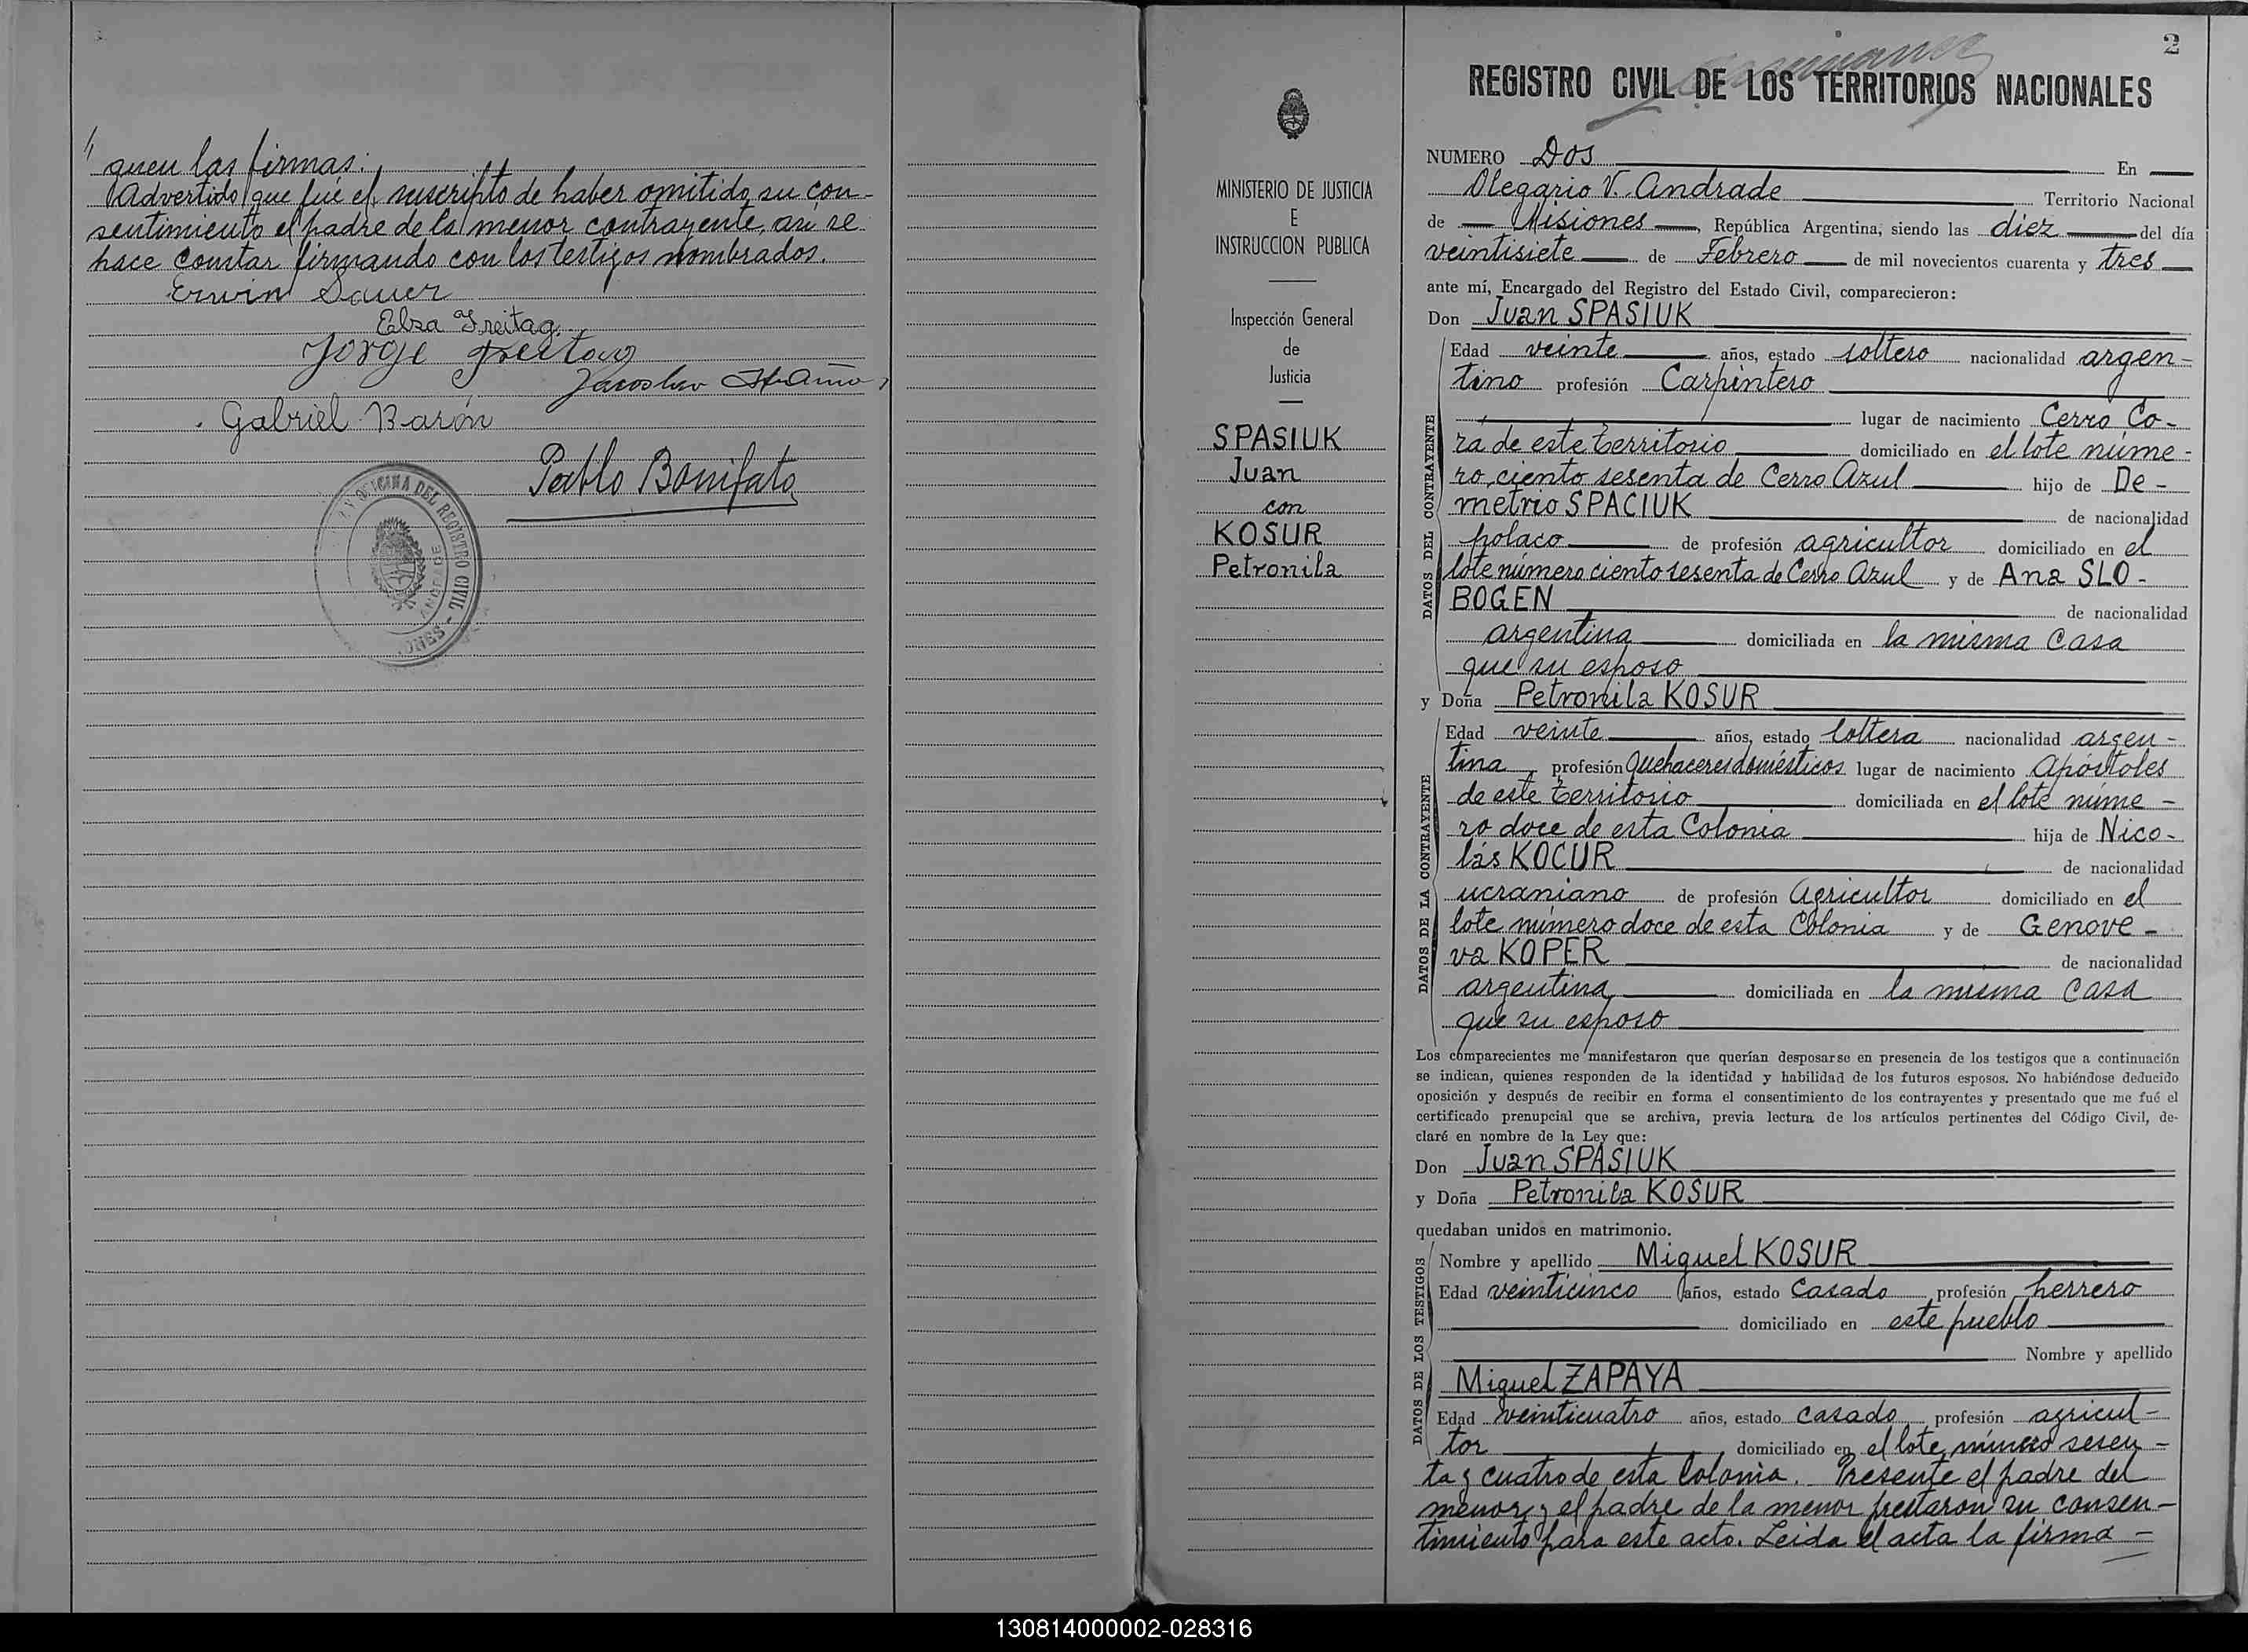 quen las firmas.
Advertido que fué el suscripto de haber omitido su con-
sentimiento el padre de la menor contrayente, así se
hace constar firmando con los testigos nombrados.
Erwin Sauer
Elsa Freitag
Jorge Freitag
Jaroslav
Gabriel Barón
Pablo Bonifato
OFICINA DEL REGISTRO CIVIL
ANDRADE
2
REGISTRO CIVIL DE LOS TERRITORIOS NACIONALES
MINISTERIO DE JUSTICIA
E
INSTRUCCION PUBLICA
Inspección General
de
Justicia
SPASIUK
Juan
con
KOSUR
Petronila
NUMERO Dos En
Olegario V. Andrade Territorio Nacional
de Misiones, República Argentina, siendo las diez del día
veintisiete de Febrero de mil novecientos cuarenta y tres
ante mí, Encargado del Registro del Estado Civil, comparecieron:
Don Juan SPASIUK
DATOS DEL CONTRAYENTE
Edad veinte años, estado soltero nacionalidad argen-
tino profesión Carpintero
lugar de nacimiento Cerro Co-
rá de este territorio domiciliado en el lote núme-
ro ciento sesenta de Cerro Azul hijo de De-
metrio SPACIUK de nacionalidad
polaco de profesión agricultor domiciliado en el
lote número ciento sesenta de Cerro Azul y de Ana SLO-
BOGEN de nacionalidad
argentina domiciliada en la misma casa
que su esposo
y Doña Petronila KOSUR
DATOS DE LA CONTRAYENTE
Edad veinte años, estado soltera nacionalidad argen-
tina profesión Quehaceres domésticos lugar de nacimiento Apóstoles
de este territorio domiciliada en el lote núme-
ro doce de esta Colonia hija de Nico-
lás KOCUR de nacionalidad
ucraniano de profesión Agricultor domiciliado en el
lote número doce de esta Colonia y de Genove-
va KOPER de nacionalidad
argentina domiciliada en la misma casa
que su esposo
Los comparecientes me manifestaron que querían desposarse en presencia de los testigos que a continuación
se indican, quienes responden de la identidad y habilidad de los futuros esposos. No habiéndose deducido
oposición y después de recibir en forma el consentimiento de los contrayentes y presentado que me fué el
certificado prenupcial que se archiva, previa lectura de los artículos pertinentes del Código Civil, de-
claré en nombre de la Ley que:
Don Juan SPASIUK
y Doña Petronila KOSUR
quedaban unidos en matrimonio.
DATOS DE LOS TESTIGOS
Nombre y apellido Miguel KOSUR
Edad veinticinco años, estado Casado profesión herrero
domiciliado en este pueblo
Nombre y apellido
Miguel ZAPAYA
Edad veinticuatro años, estado casado profesión agricul-
tor domiciliado en el lote número sesen-
ta y cuatro de esta Colonia. Presente el padre del
menor y el padre de la menor prestaron su consen-
timiento para este acto. Leida el acta la firma-
130814000002-028316